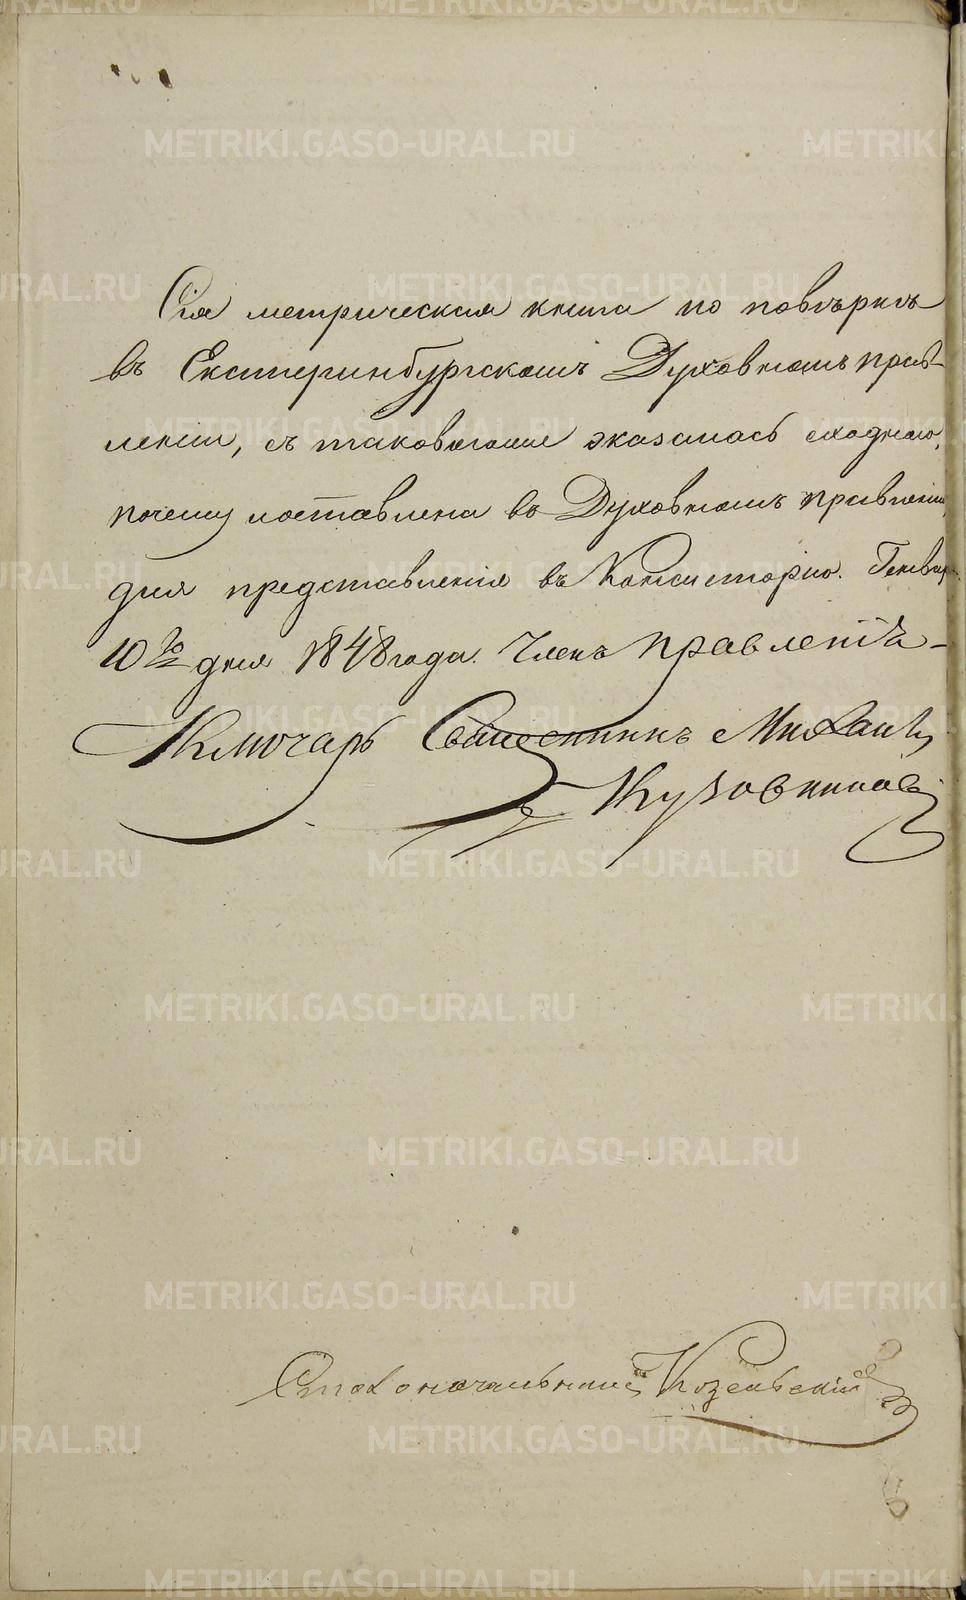 Сія метрическая книга по повѣркѣ
въ Екатеринбургскомъ Духовномъ прав-
леніи, съ таковыми оказалась сходною,
почему и оставлена въ Духовномъ правленіи,
для представленія въ Консисторію. Генвар
10го дня 1848 года. Членъ правленія -
Ключарь Священникъ Михаилъ
Кузовниковъ
Столоначальникъ Козельскій
METRIKI.GASO-URAL.RU